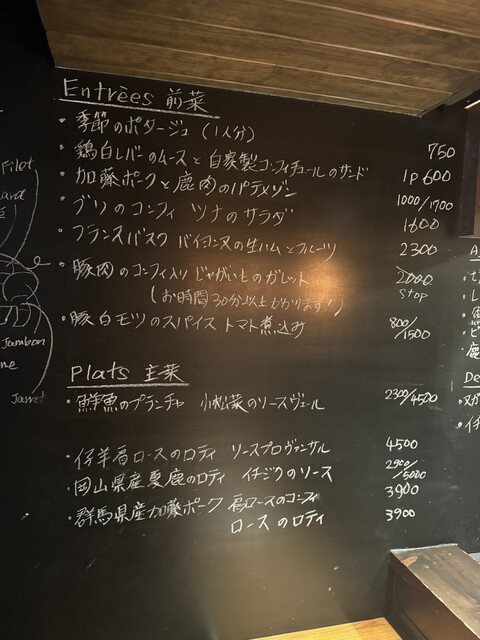 Entrées 前菜
・季節のポタージュ (1人分) 750
・鶏白レバーのムースと自家製コンフィチュールのサンド 1p600
・加藤ポークと鹿肉のパテメゾン 1000/1700
・ブリのコンフィ ツナのサラダ 1600
・フランスバスク バイヨンヌの生ハムとフルーツ 2300
・豚肉のコンフィ入り じゃがいものガレット 2000
(お時間30分以上かかります!) stop
・豚白モツのスパイストマト煮込み 800/1500
Plats 主菜
・鮮魚のプランチャ 小松菜のソースヴェール 2300/4500
・仔羊肩ロースのロティ ソースプロヴァンサル 4500
・岡山県産夏鹿のロティ イチジクのソース 2900/5000
・群馬県産加藤ポーク 肩ロースのコンフィ 3900
ロースのロティ 3900
Filet
Jambon
Jarret
De